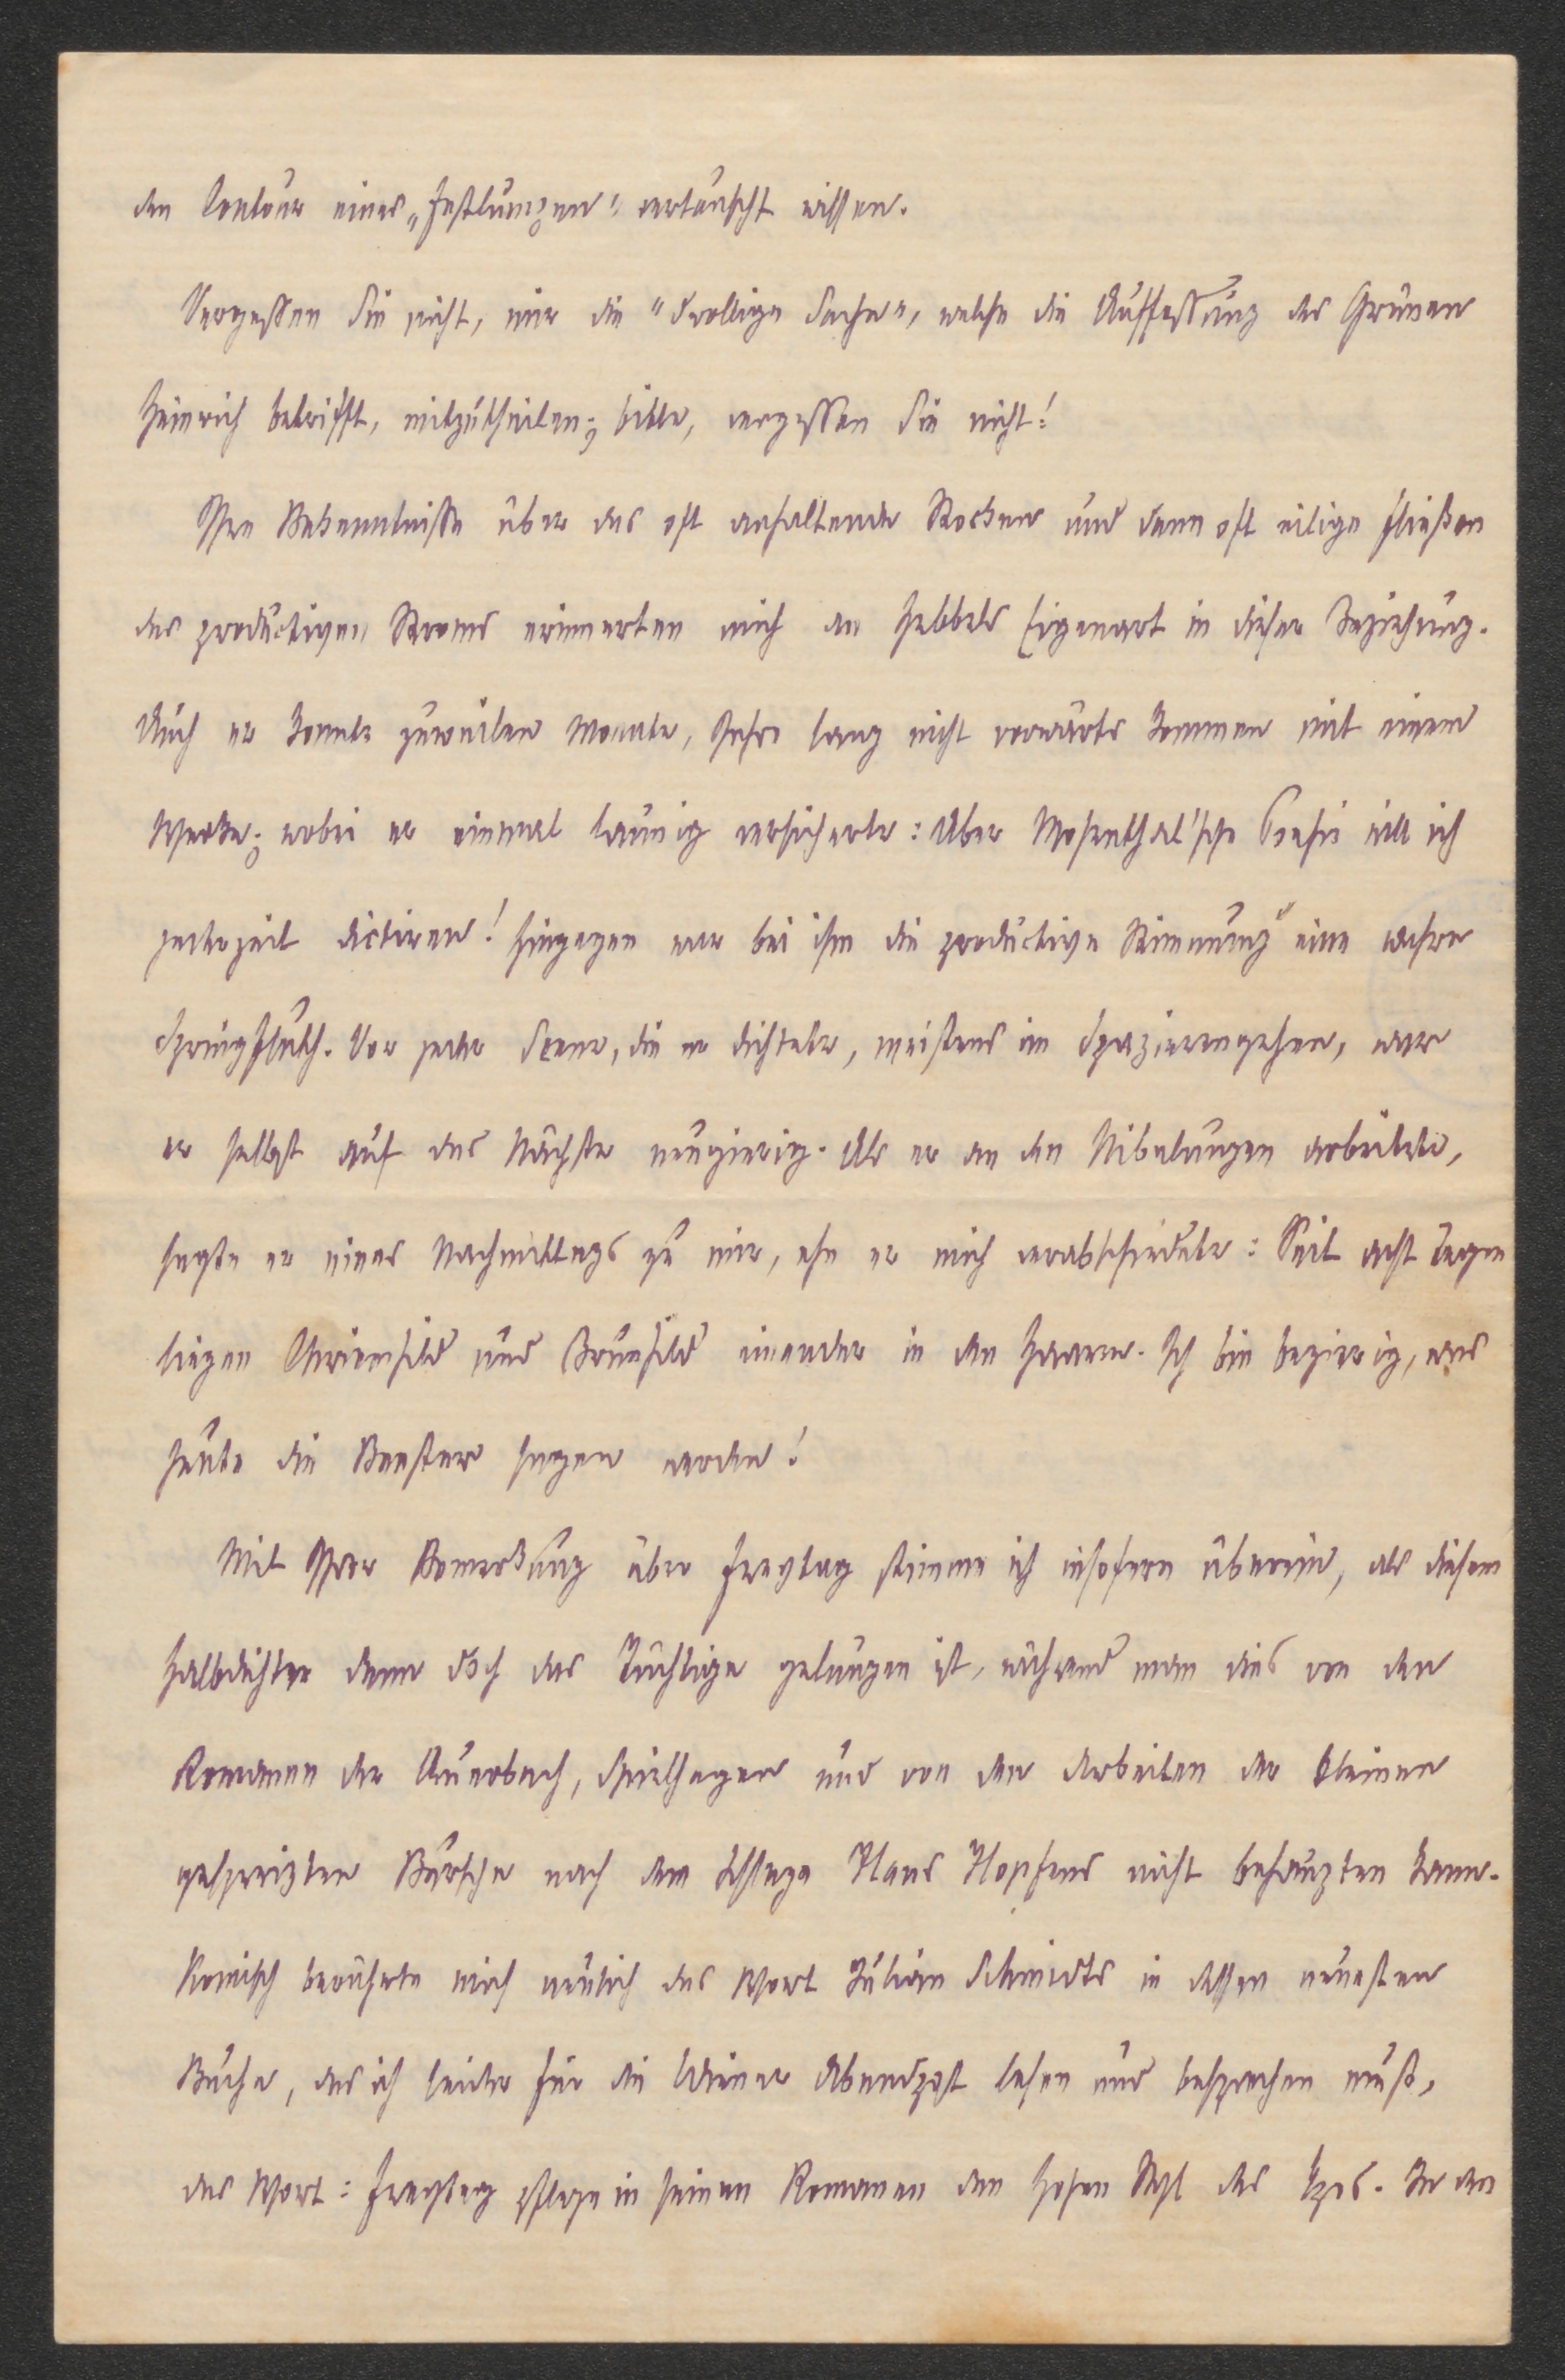 den Contour eines „Festlungen" vertauscht wissen.
Vergessen Sie nicht, mir die "drollige Sache", welche die Auffassung des Grünen
Heinrich betrifft, mitzutheilen; bitte, vergessen Sie nicht!
Ihre Bekenntnisse über das oft anhaltende Stocken und dann oft eilige Fließen
des productiven Stroms erinnerten mich an Hebbels Eigenart in dieser Beziehung.
Auch er konnte zuweilen Monate, Jahre lang nicht vorwärts kommen mit einem
Werke; wobei er einmal launig versicherte: Aber Mosenthal'sche Poesie will ich
jederzeit dictiren! Hingegen war bei ihm die productive Stimmung eine wahre
Springfluth. Vor jeder Scene, die er dichtete, meistens im Spazierengehen, war
er selbst auf das Nächste neugierig. Als er an den Nibelungen arbeitete,
sagte er eines Nachmittags zu mir, ehe er mich verabschiedete: Seit acht Tagen
liegen Chriemhild und Brunhild einander in den Haaren. Ich bin begierig, was
heute die Beester sagen werden!
Mit Ihrer Bemerkung über Freytag stimme ich insofern überein, als diesem
Halbdichter denn doch das Tüchtige gelungen ist, während man dies von den
Romanen der Auerbach, Spielhagen und von den Arbeiten der kleinen
gespreizten Bursche nach dem Schlage Hans Hopfens nicht behaupten kann.
Komisch berührte mich neulich das Wort Julian Schmidts in dessen neuesten
Buche, das ich leider für die Wiener Abendpost lesen und besprechen muß,
das Wort: Freytag pflege in seinen Romanen den hohen Styl des Epos. In den